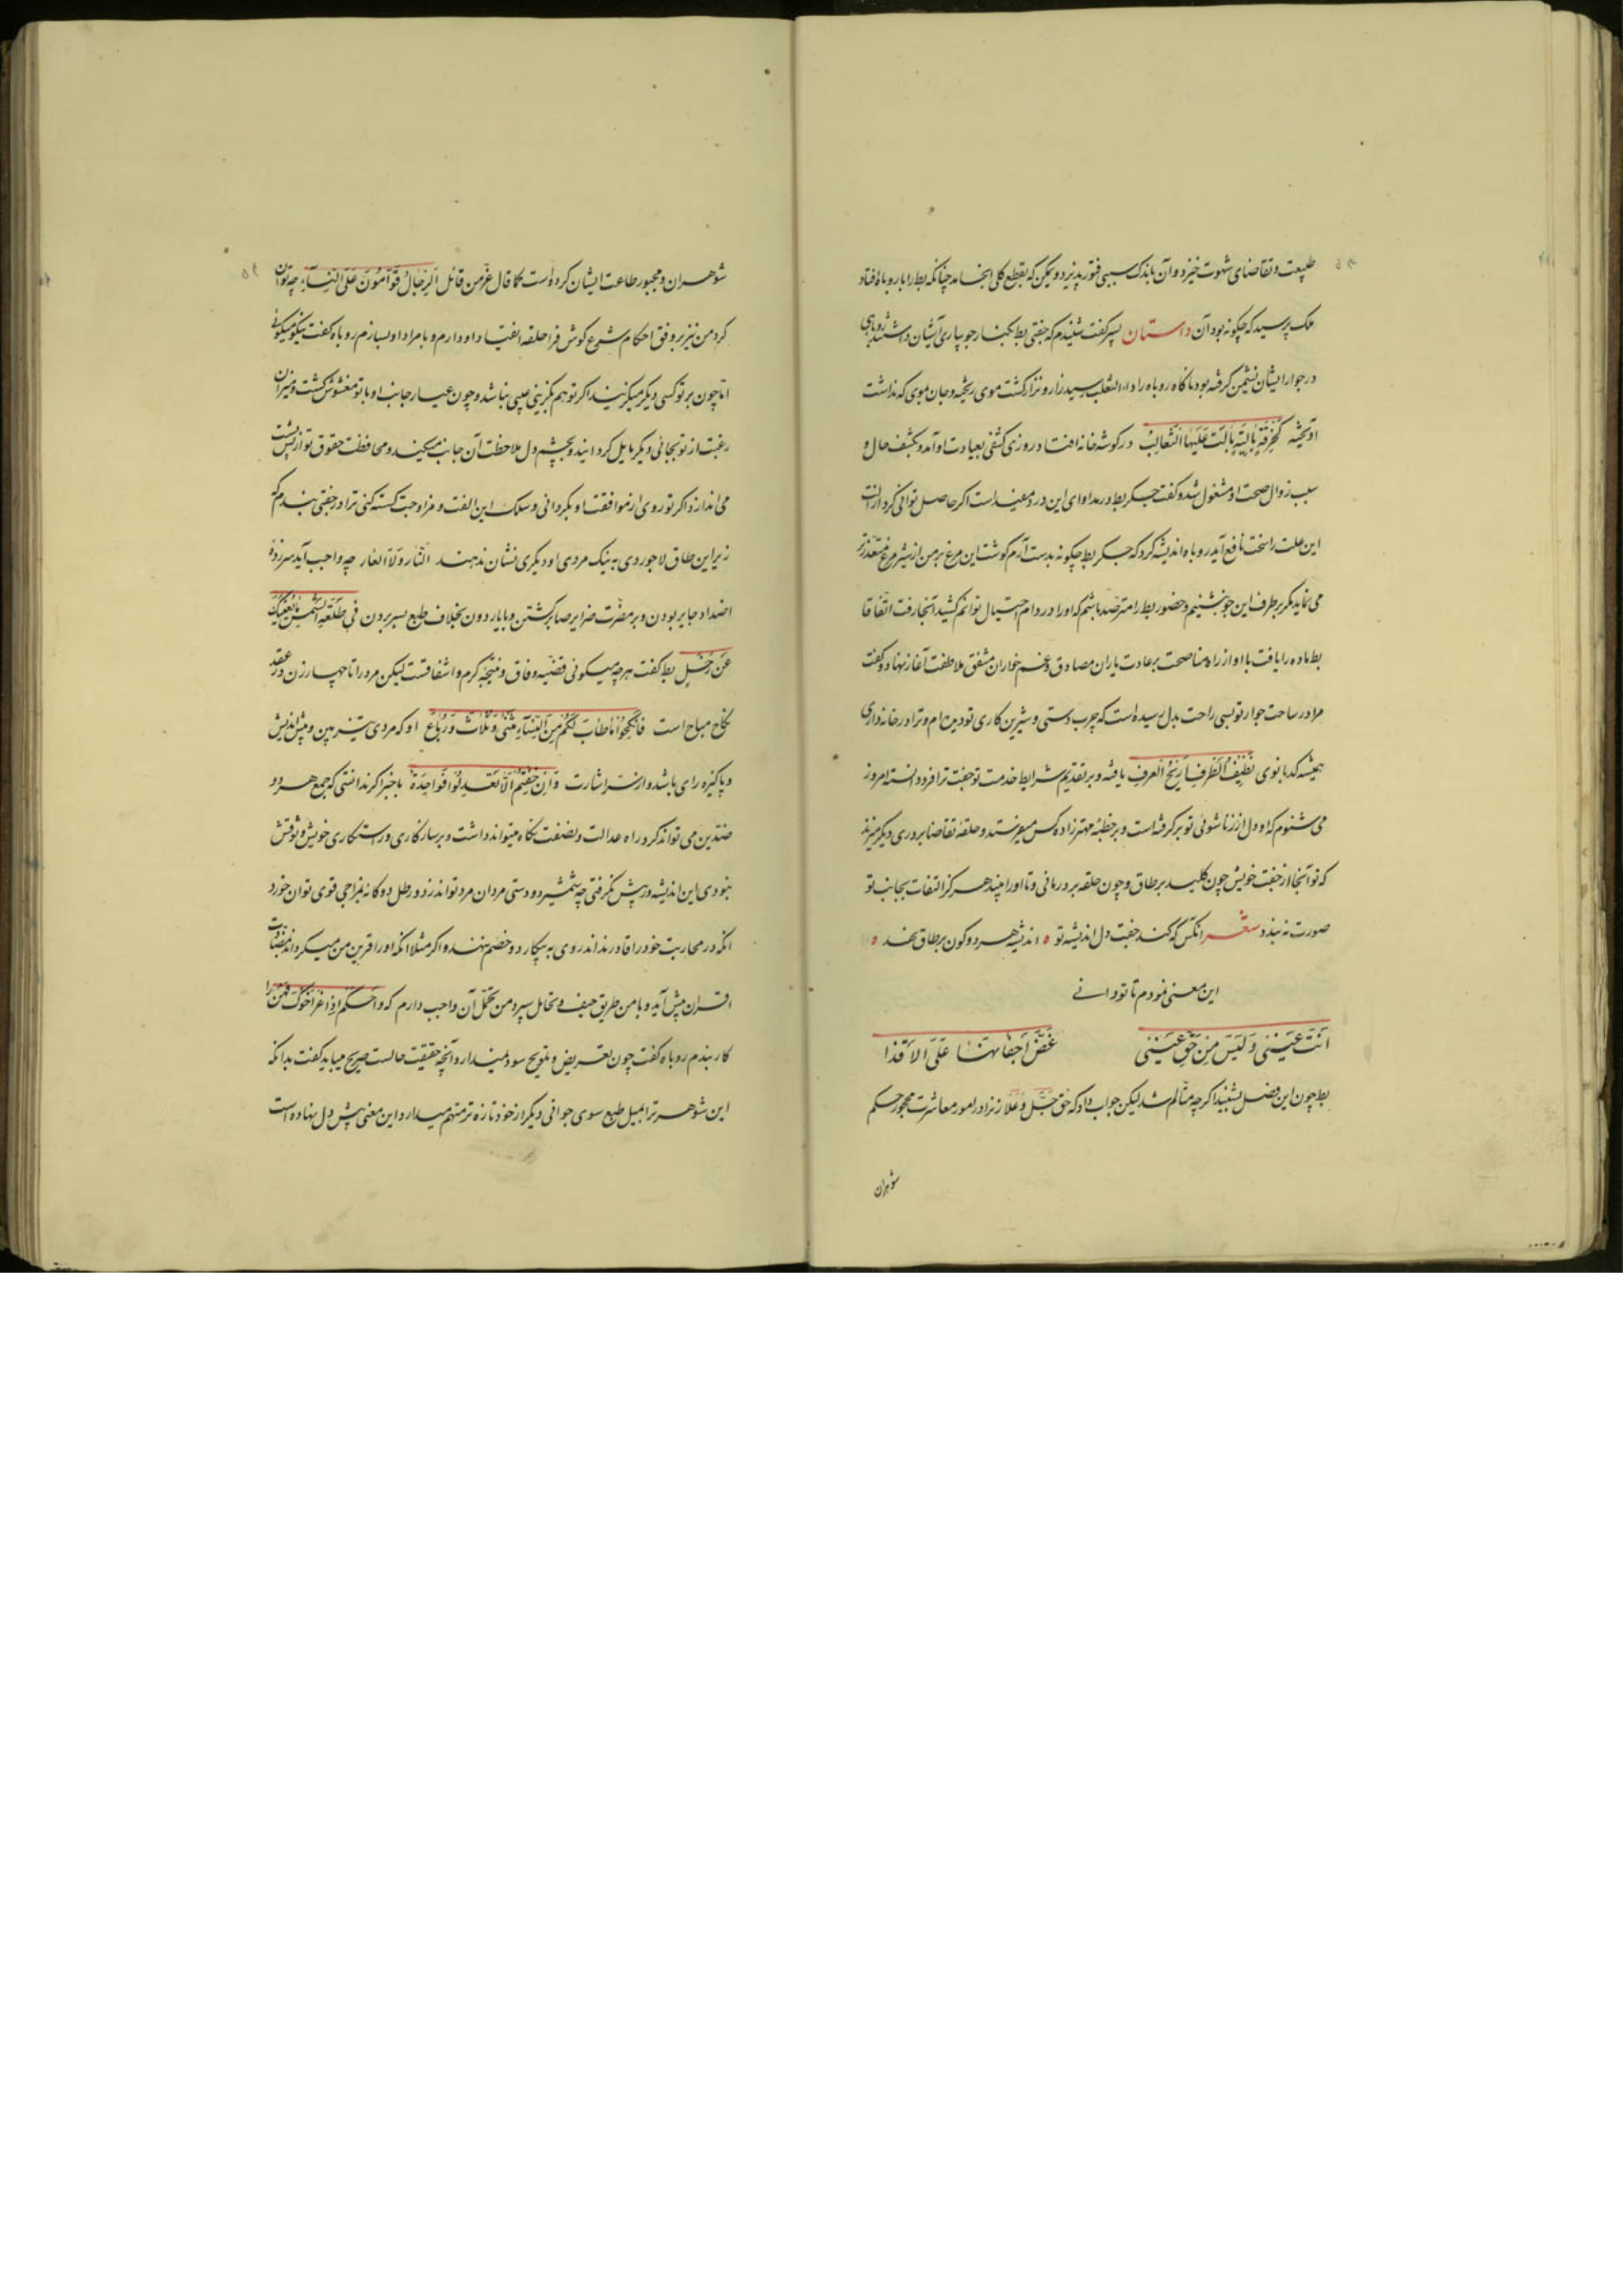 طبیعت و تقاضای شهوت خیزد و آن باندک سببی فتور پذیرد و ممکن که بقطع کلی انجامد چنانکه بط را با روباه افتاد
ملک پرسید که چگونه بود آن داستان پسر گفت شنیدم که جفتی بط بکنار جویباری آشیان داشتند روباهی
در جوار ایشان نشیمن گرفته بود ناگاه روباه را داء الثعلب رسید زار و نزار گشت موی ریخته و جان بموی که نداشت
آویخته کخرقة بالیة بالت علیها الثعالب در گوشه خانه افتاد روزی کشفی بعیادت او آمد و بکشف حال و
سبب زوال صحت او مشغول شد و گفت جگر بط در مداوای این درد مفید است اگر حاصل توانی کرد ازالت
این علت را سخت نافع آید روباه اندیشه کرد که جگر بط چگونه بدست آرم گوشت این مرغ بر من از شیر مرغ متعذرتر
می نماید مگر بر طرف این جو بنشینم و حضور بط را مترصد باشم که او را در دام احتیال توانم کشید آنجا رفت اتفاقا
بط ماده را یافت با او از راه مناصحت بر عادت یاران مصادق و غمخواران مشفق ملاطفت آغاز نهاد و گفت
مرا در ساحت جوار تو بسی راحت بدل رسیده است که چرب دستی و شیرین کاری تو دیده ام و ترا در خانه داری
همیشه کدبانوی نظیف الطرف اریج العرف یافته و بر تقدیم شرایط خدمت تو جفت ترا فرود دانسته امروز
می شنوم که او دل از زناشوئی تو برگرفته است و بر خطبهٔ مهترزاده کس میفرستد و حلقه تقاضا بر دری دیگر میزند
که تو آنجا از جفت خویش چون کلید بر طاق و چون حلقه بر در مانی و تا او را بیند هرگز التفات بجانب تو
صورت نه بندد شعر آنکس که کند جفت دل اندیشه تو ه اندیشه هر دو کون بر طاق نهد ه
این معنی نمودم تا تو دانی
انت عینی و لیس من حق عینی غض اجفانها علی الاقذا
بط چون این فصل بشنید اگر چه متألم شد لیکن جواب داد که حق جل و علا زنرا در امور معاشرت محجور حکم
شوهران
شوهران و مجبور طاعت ایشان کرده است کما قال عز من قائل الرجال قوامون علی النساء چه توان
کرد من نیز بر وفق احکام شرع گوش فرا حلقه انقیاد او دارم و با مراد او بسازم روباه گفت نیکو میگوئی
اما چون بر تو کسی دیگر میگزیند اگر تو هم بگزینی عیبی نباشد و چون عیار جانب او با تو مغشوش گشت و میزان
رغبت از تو بجائی دیگر مایل گردانید و بچشم دل ملاحظت آن جانب میکند و محافظت حقوق تو از پس پشت
می اندازد اگر تو روی از موافقت او بگردانی و سلک این الفت و مزاوجت گسسته کنی ترا در جفتی بندم که
زیر این طاق لاجوردی به نیک مردی او دیگری نشان ندهند النار ولا العار چه واجب آید سرزده
اضداد جایر بودن و بر مضرت ضرایر صابر گشتن و با یار دون بخلاف طبع بسر بردن فی طلعة الشمس ما یغنیک
عن زحل بط گفت هر چه میگوئی قضیه وفاق و نتیجه کرم و اشفاقست لیکن مرد را تا چهار زن در عقد
نکاح مباح است فانکحوا ما طاب لکم من النساء مثنی و ثلاث و رباع او که مردی تیز بین و پیش اندیش
و پاکیزه رای باشد و از سر اشارت و ان خفتم الا تعدلوا فواحدة باخبر اگر ندانستی که جمع هر دو
ضدین می تواند کرد و راه عدالت و نصفت نگاه میتواند داشت و بر سازگاری و راستکاری خویش وثوقش
نبودی این اندیشه در پیش نگرفتی چه شمشیر دو دستی مردان مرد توانند زد و رطل دوگانه بمزاجی قوی توان خورد
آنکه در محاربت خود را قادر نداند روی به پیکار دو خصم ننهد و اگر مثلا آنکه او را قرین من میگرداند بمضادت
اقران پیش آید و با من طریق حیف و تحامل سپرد من تحمل آن واجب دارم که و احتکم اذا عز اخوک فهن را
کار بندم روباه گفت چون تعریض و تلویح سود نمیدارد و آنچه حقیقت حالست صریح میباید گفت بدانکه
این شوهر ترا بمیل طبع سوی جوانی دیگر از خود تازه تر متهم میدارد و این معنی پیش دل نهاده است